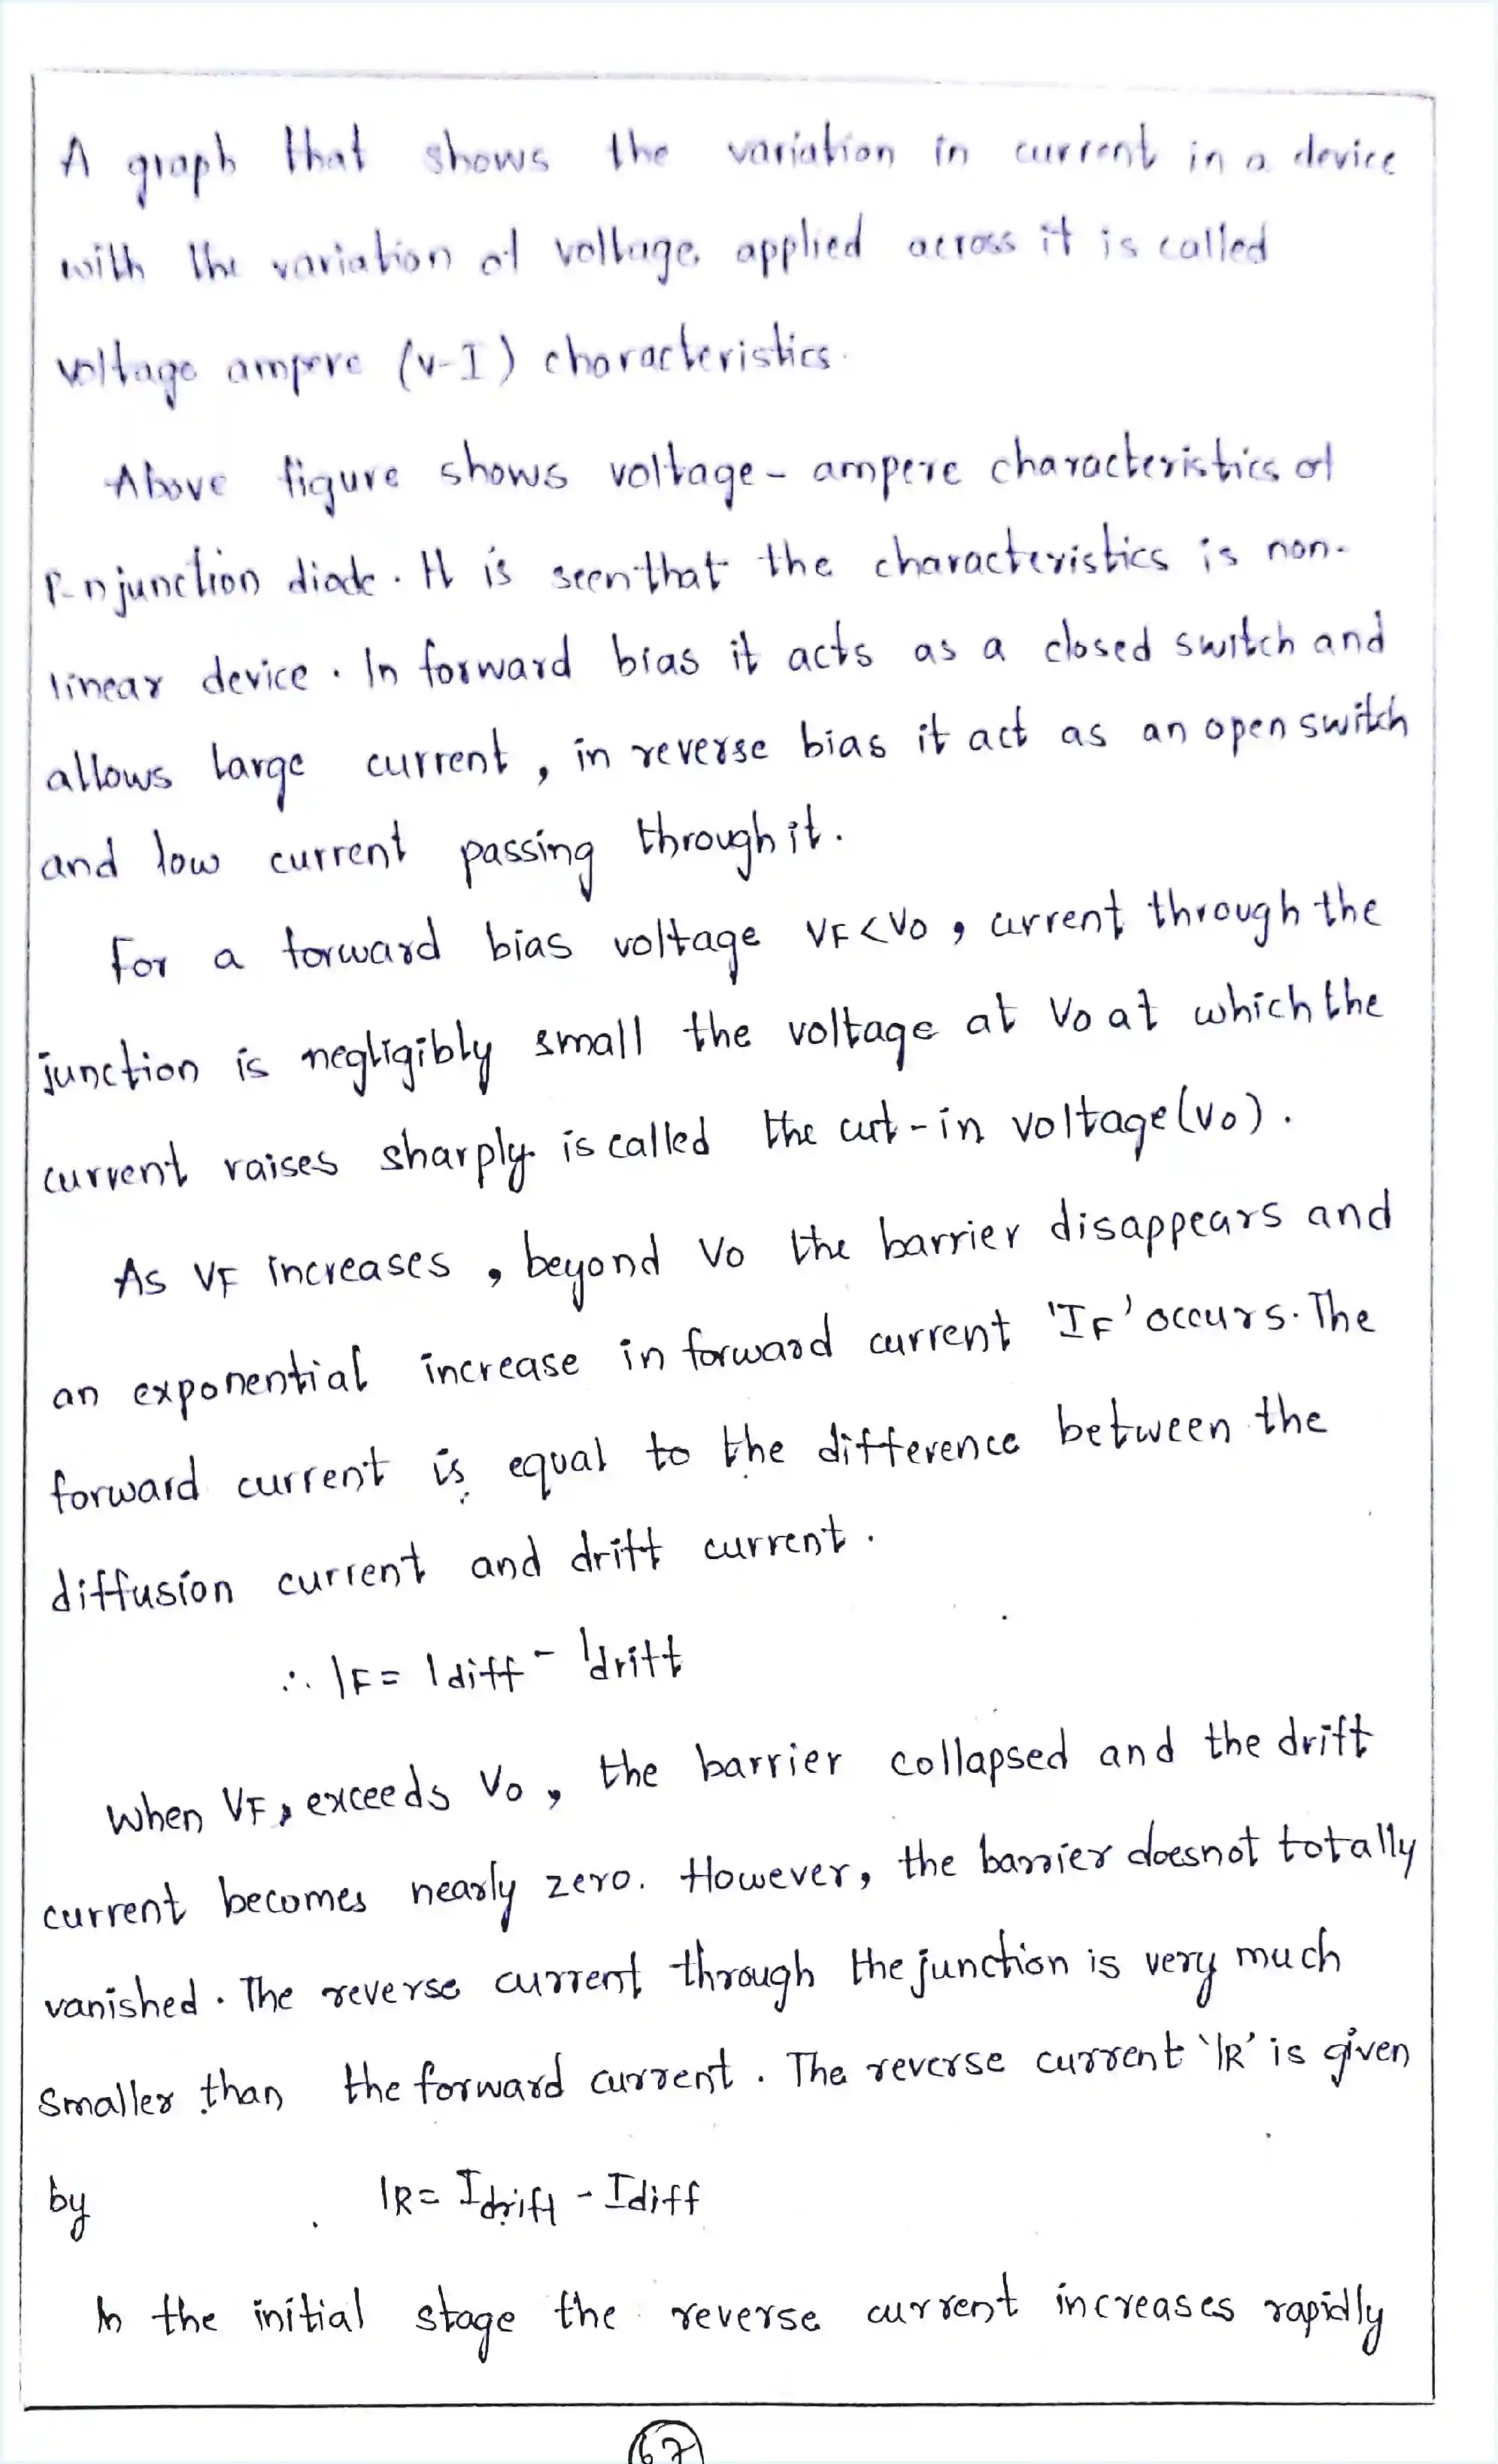 A graph that shows the variation in current in a device
with the variation of voltage applied across it is called
voltage ampere (v-I) characteristics.
Above figure shows voltage - ampere characteristics of
P-n junction diode. It is seen that the characteristics is non-
linear device. In forward bias it acts as a closed switch and
allows large current, in reverse bias it act as an open switch
and low current passing through it.
For a forward bias voltage VF < V0, current through the
junction is negligibly small the voltage at V0 at which the
current raises sharply is called the cut-in voltage (V0).
As VF increases, beyond V0 the barrier disappears and
an exponential increase in forward current 'IF' occurs. The
forward current is equal to the difference between the
diffusion current and drift current.
∴ IF = Idiff - Idrift
When VF, exceeds V0, the barrier collapsed and the drift
current becomes nearly zero. However, the barrier doesnot totally
vanished. The reverse current through the junction is very much
smaller than the forward current. The reverse current 'IR' is given
by IR = Idrift - Idiff
In the initial stage the reverse current increases rapidly
67